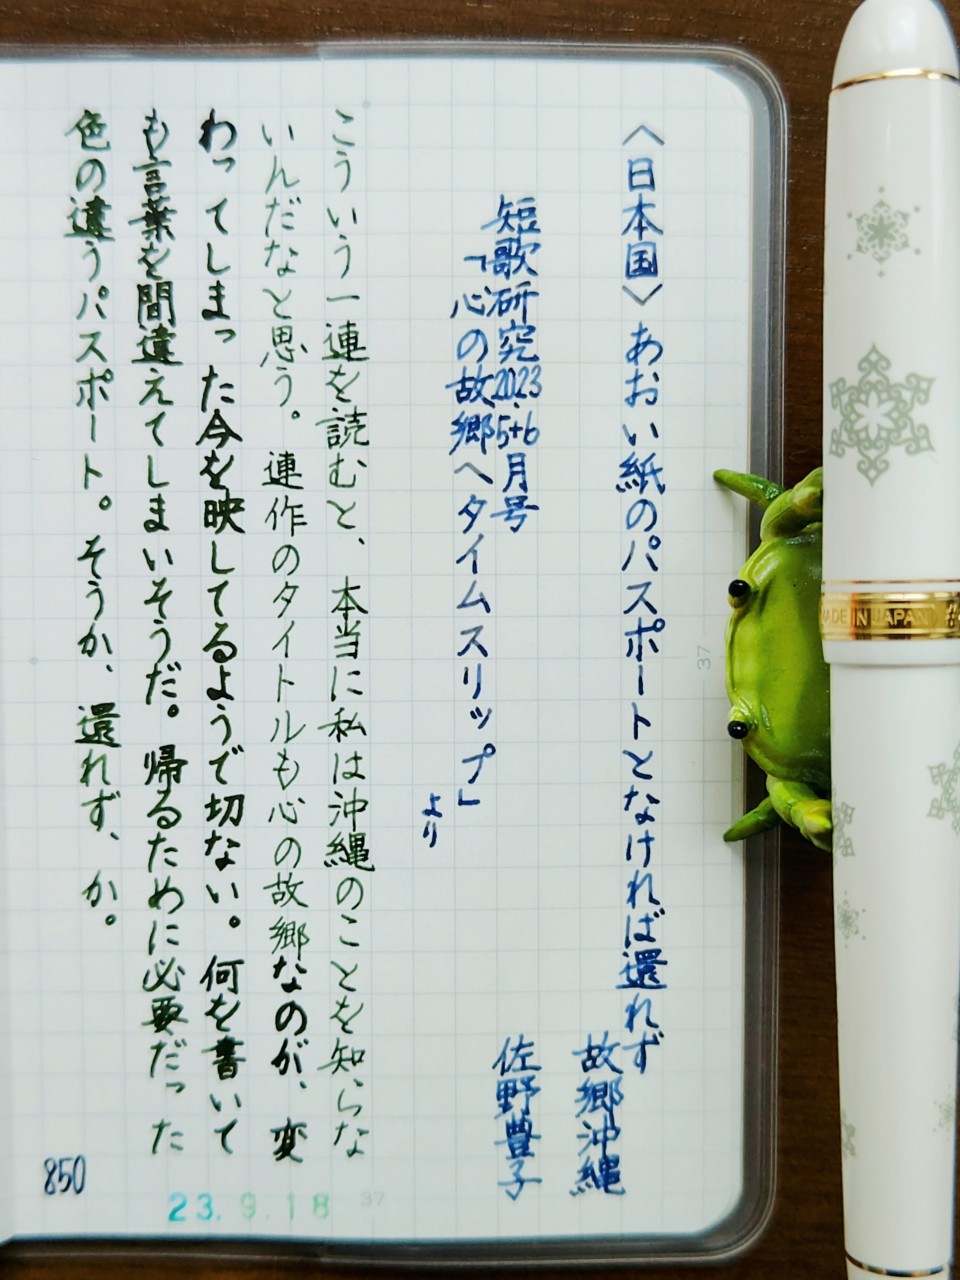 〈日本国〉あおい紙のパスポートとなければ還れず
故郷沖縄
佐野豊子
短歌研究2023.5+6月号
「心の故郷へタイムスリップ」
より
こういう一連を読むと、本当に私は沖縄のことを知らな
いんだなと思う。連作のタイトルも心の故郷なのが、変
わってしまった今を映してるようで切ない。何を書いて
も言葉を間違えてしまいそうだ。帰るために必要だった
色の違うパスポート。そうか、還れず、か。
850
23.9.18
37
37
MADE IN JAPAN